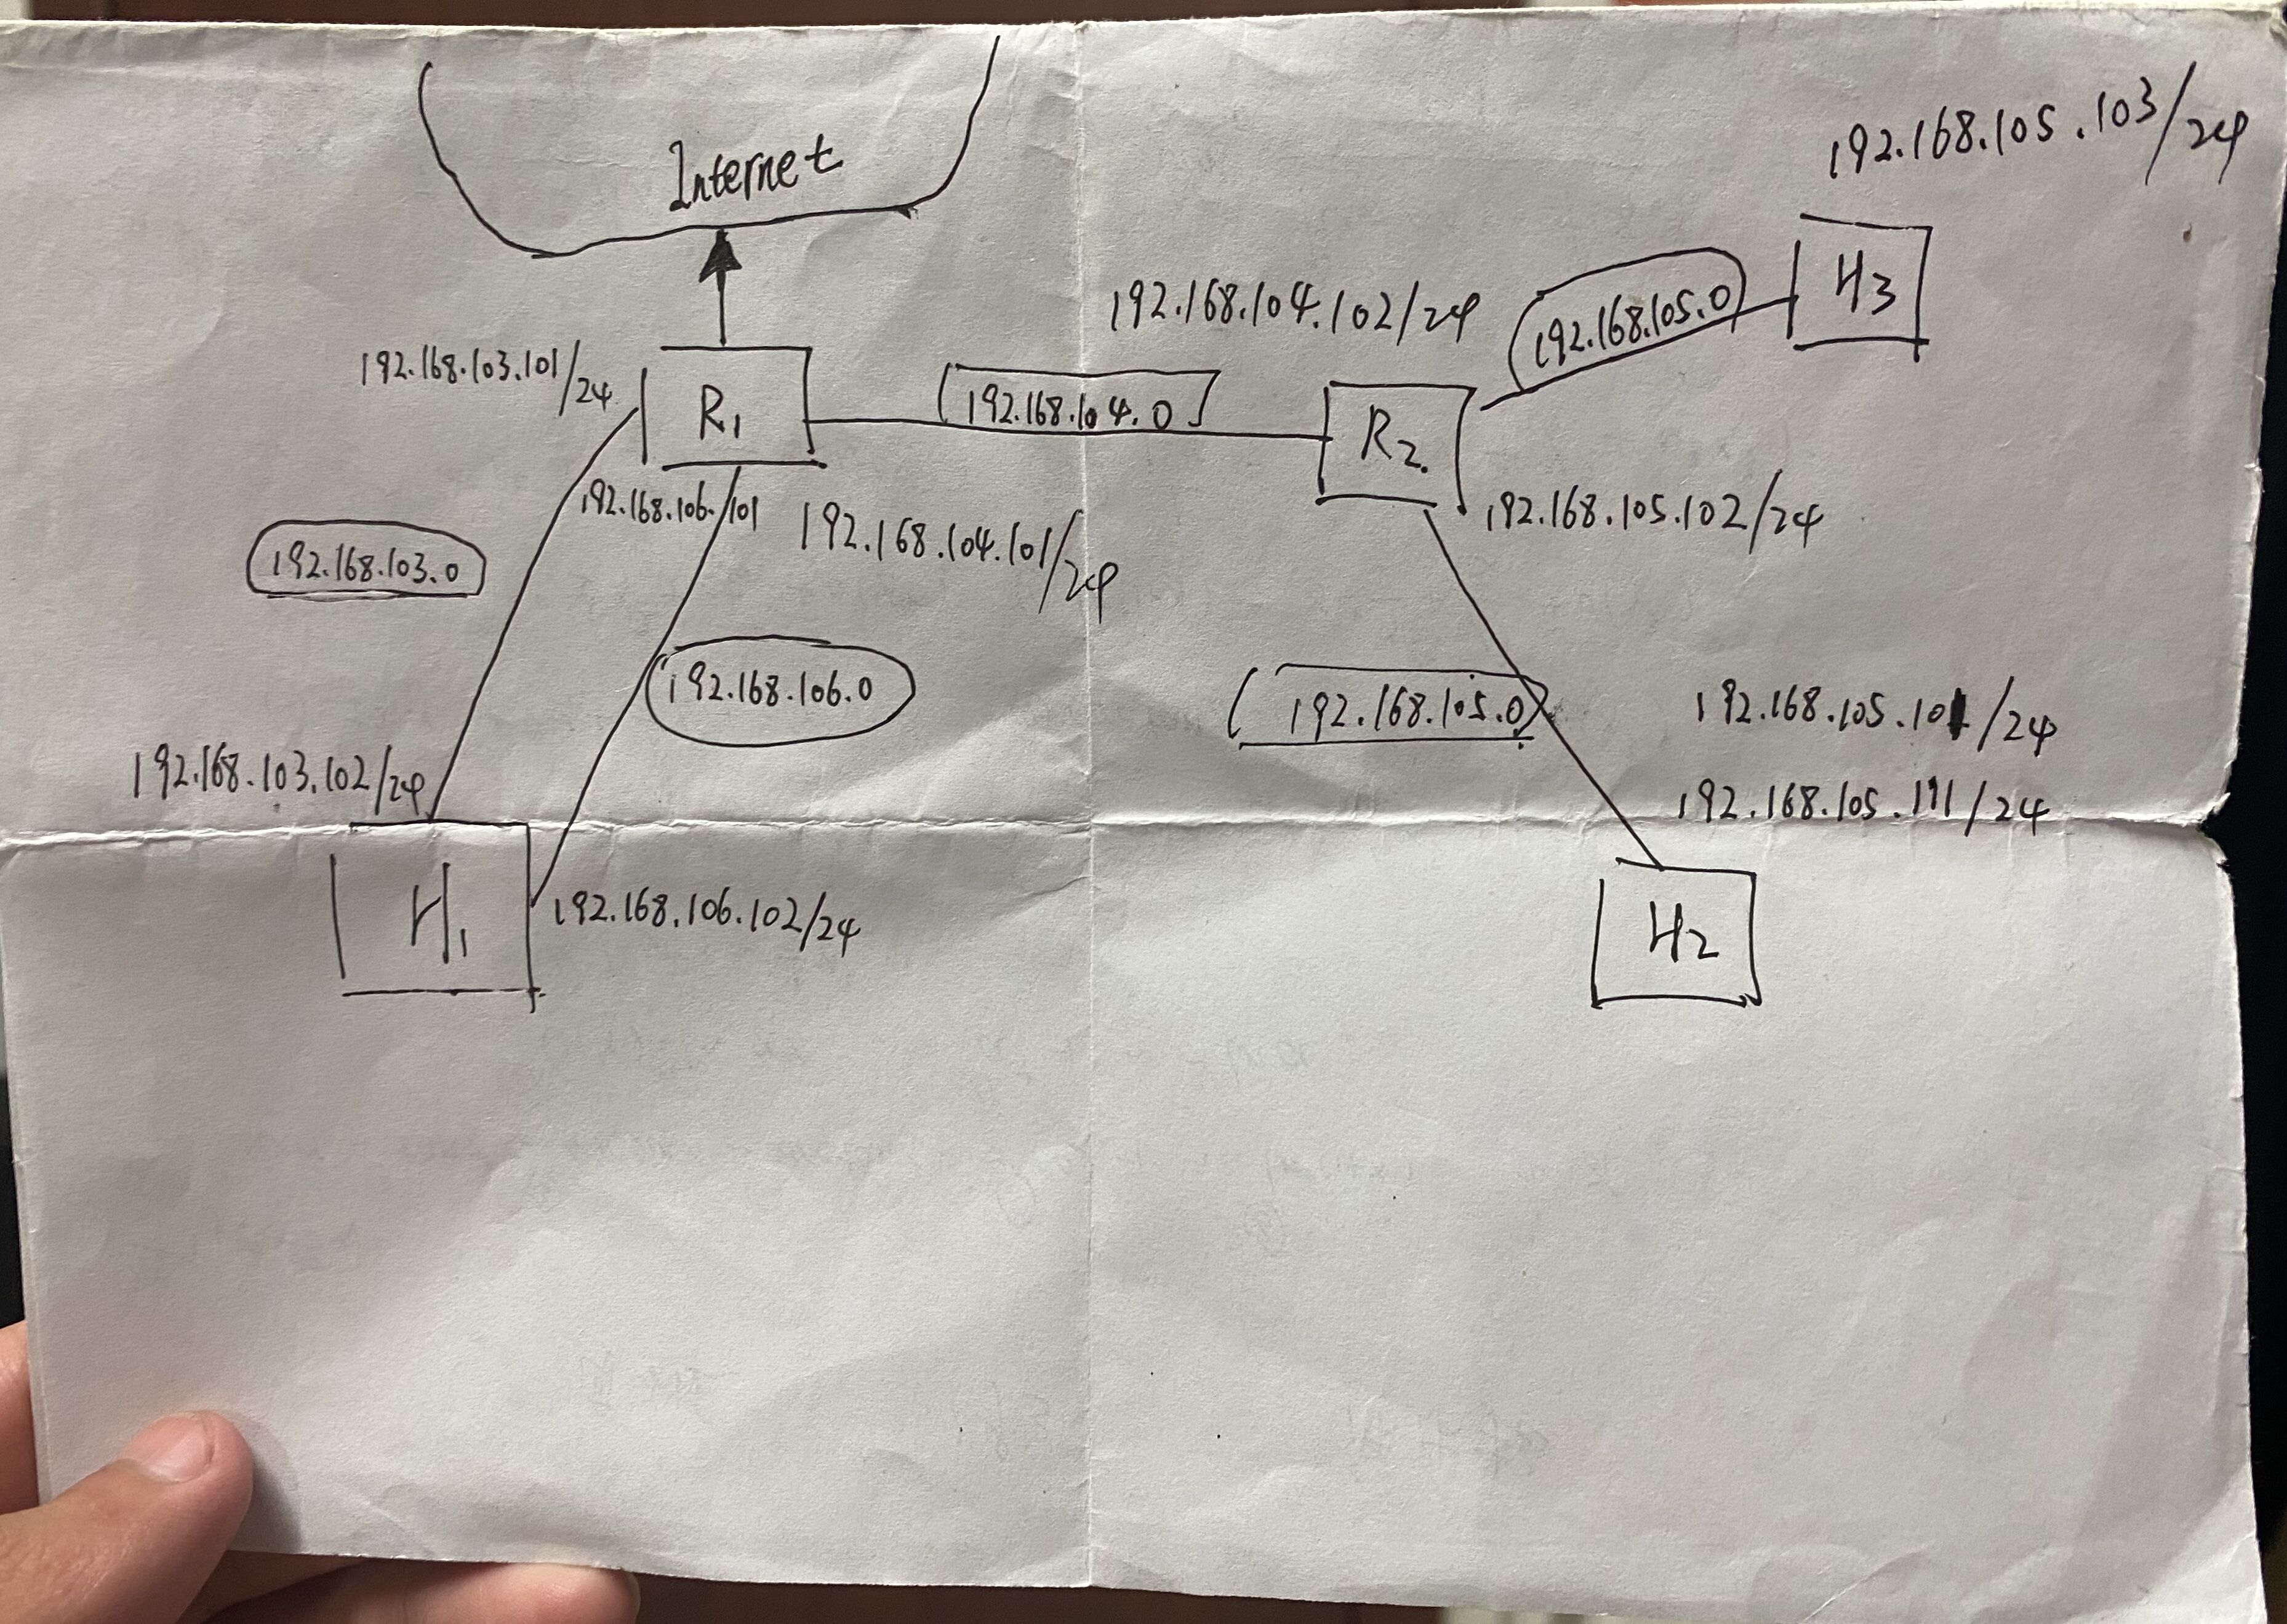 Internet
192.168.105.103/24
H3
192.168.104.102/24
192.168.105.0
192.168.103.101/24
R1
192.168.104.0
R2.
192.168.106.101
192.168.104.101/24
192.168.105.102/24
192.168.103.0
192.168.106.0
192.168.105.0
192.168.105.101/24
192.168.105.111/24
192.168.103.102/24
H1
192.168.106.102/24
H2